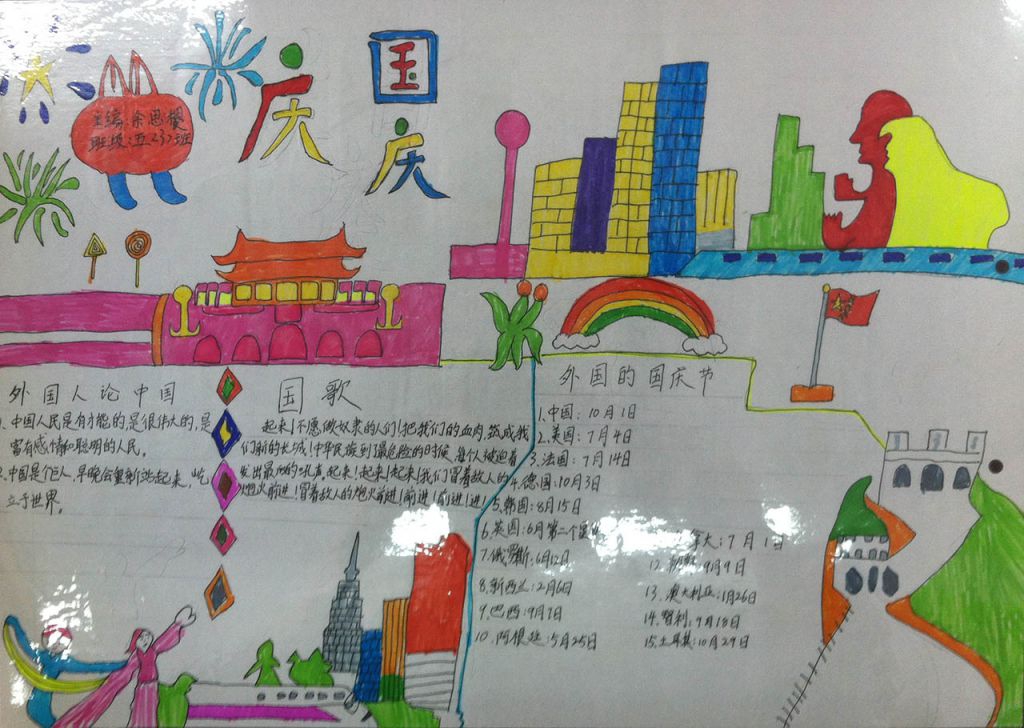 主编:余思樱
班级:五237班
庆
国
庆
外国人论中国
1.中国人民是有才能的,是很伟大的,是
富有感情和聪明的人民。
2.中国是个巨人,早晚会重新站起来,屹
立于世界。
国歌
起来!不愿做奴隶的人们!把我们的血肉,筑成我
们新的长城!中华民族到了最危险的时候,每个人被迫着
发出最后的吼声。起来!起来!起来!我们冒着敌人的
炮火前进!冒着敌人的炮火前进!前进!前进!进!
外国的国庆节
1.中国:10月1日
2.美国:7月4日
3.法国:7月14日
4.德国:10月3日
5.韩国:8月15日
6.英国:6月第二个星
7.俄罗斯:6月12日
8.新西兰:2月6日
9.巴西:9月7日
10.阿根廷:5月25日
拿大:7月1日
12.9月9日
13.澳大利亚:1月26日
14.智利:9月18日
15.土耳其:10月29日